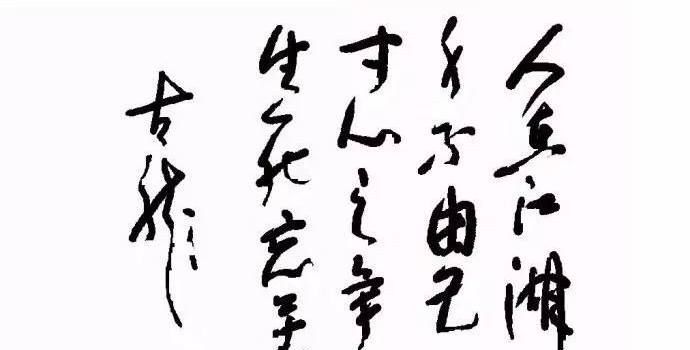 人在江湖
身不由己
寸心之争
生死忘
古龍